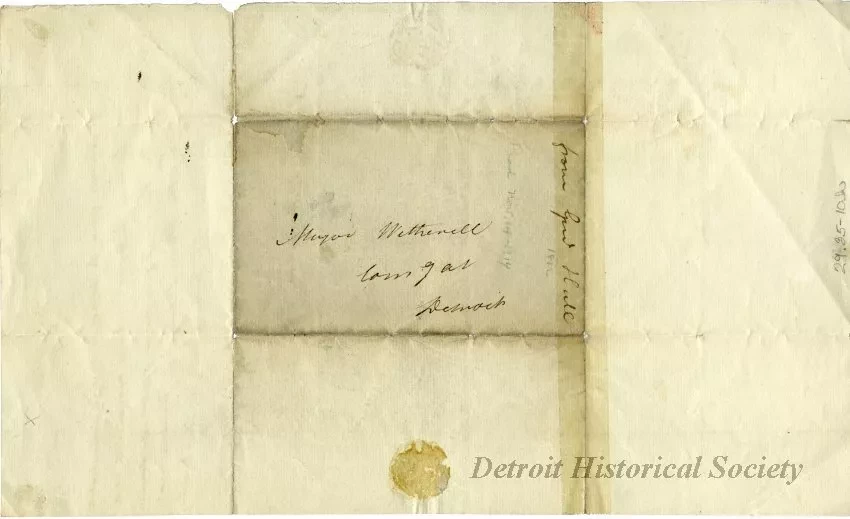 Major Witherell
Com g at
Detroit
from Genl Hull
1812
29.35-10ab
Detroit Historical Society